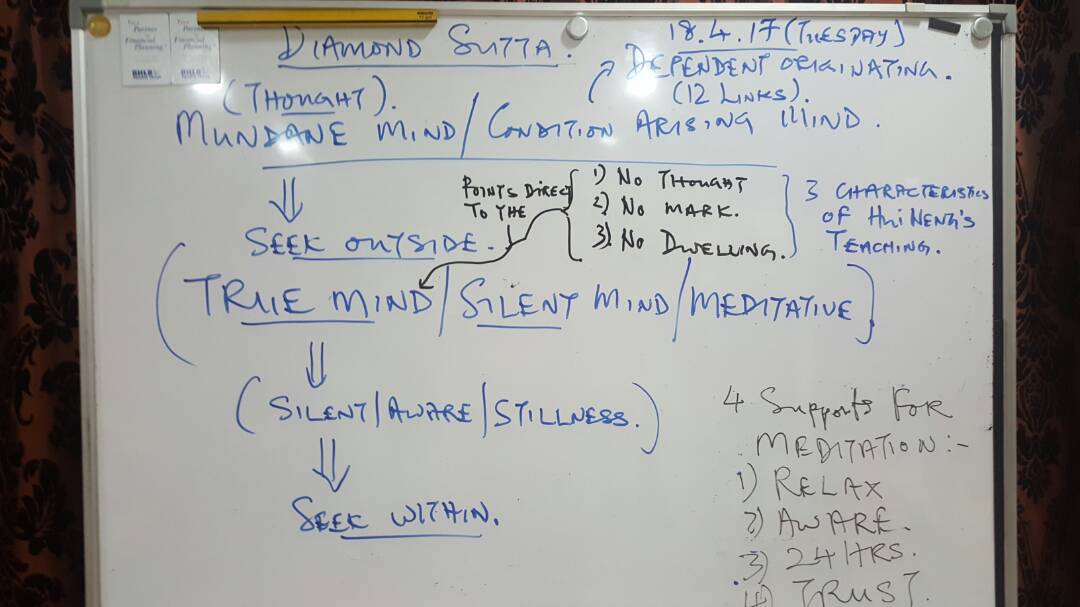 DIAMOND SUTTA.
18.4.17 (TUESDAY)
DEPENDENT ORIGINATING.
(12 LINKS).
(THOUGHT).
MUNDANE MIND/CONDITION ARISING MIND.
SEEK OUTSIDE.
POINTS DIRECT
TO THE
1) NO THOUGHT
2) NO MARK.
3) NO DWELLING.
3 CHARACTERISTICS
OF HUI NENG'S
TEACHING.
(TRUE MIND/SILENT MIND/MEDITATIVE)
(SILENT/AWARE/STILLNESS.)
SEEK WITHIN.
4 Supports FOR
MEDITATION:-
1) RELAX
2) AWARE.
3) 24 HRS.
4) TRUST.